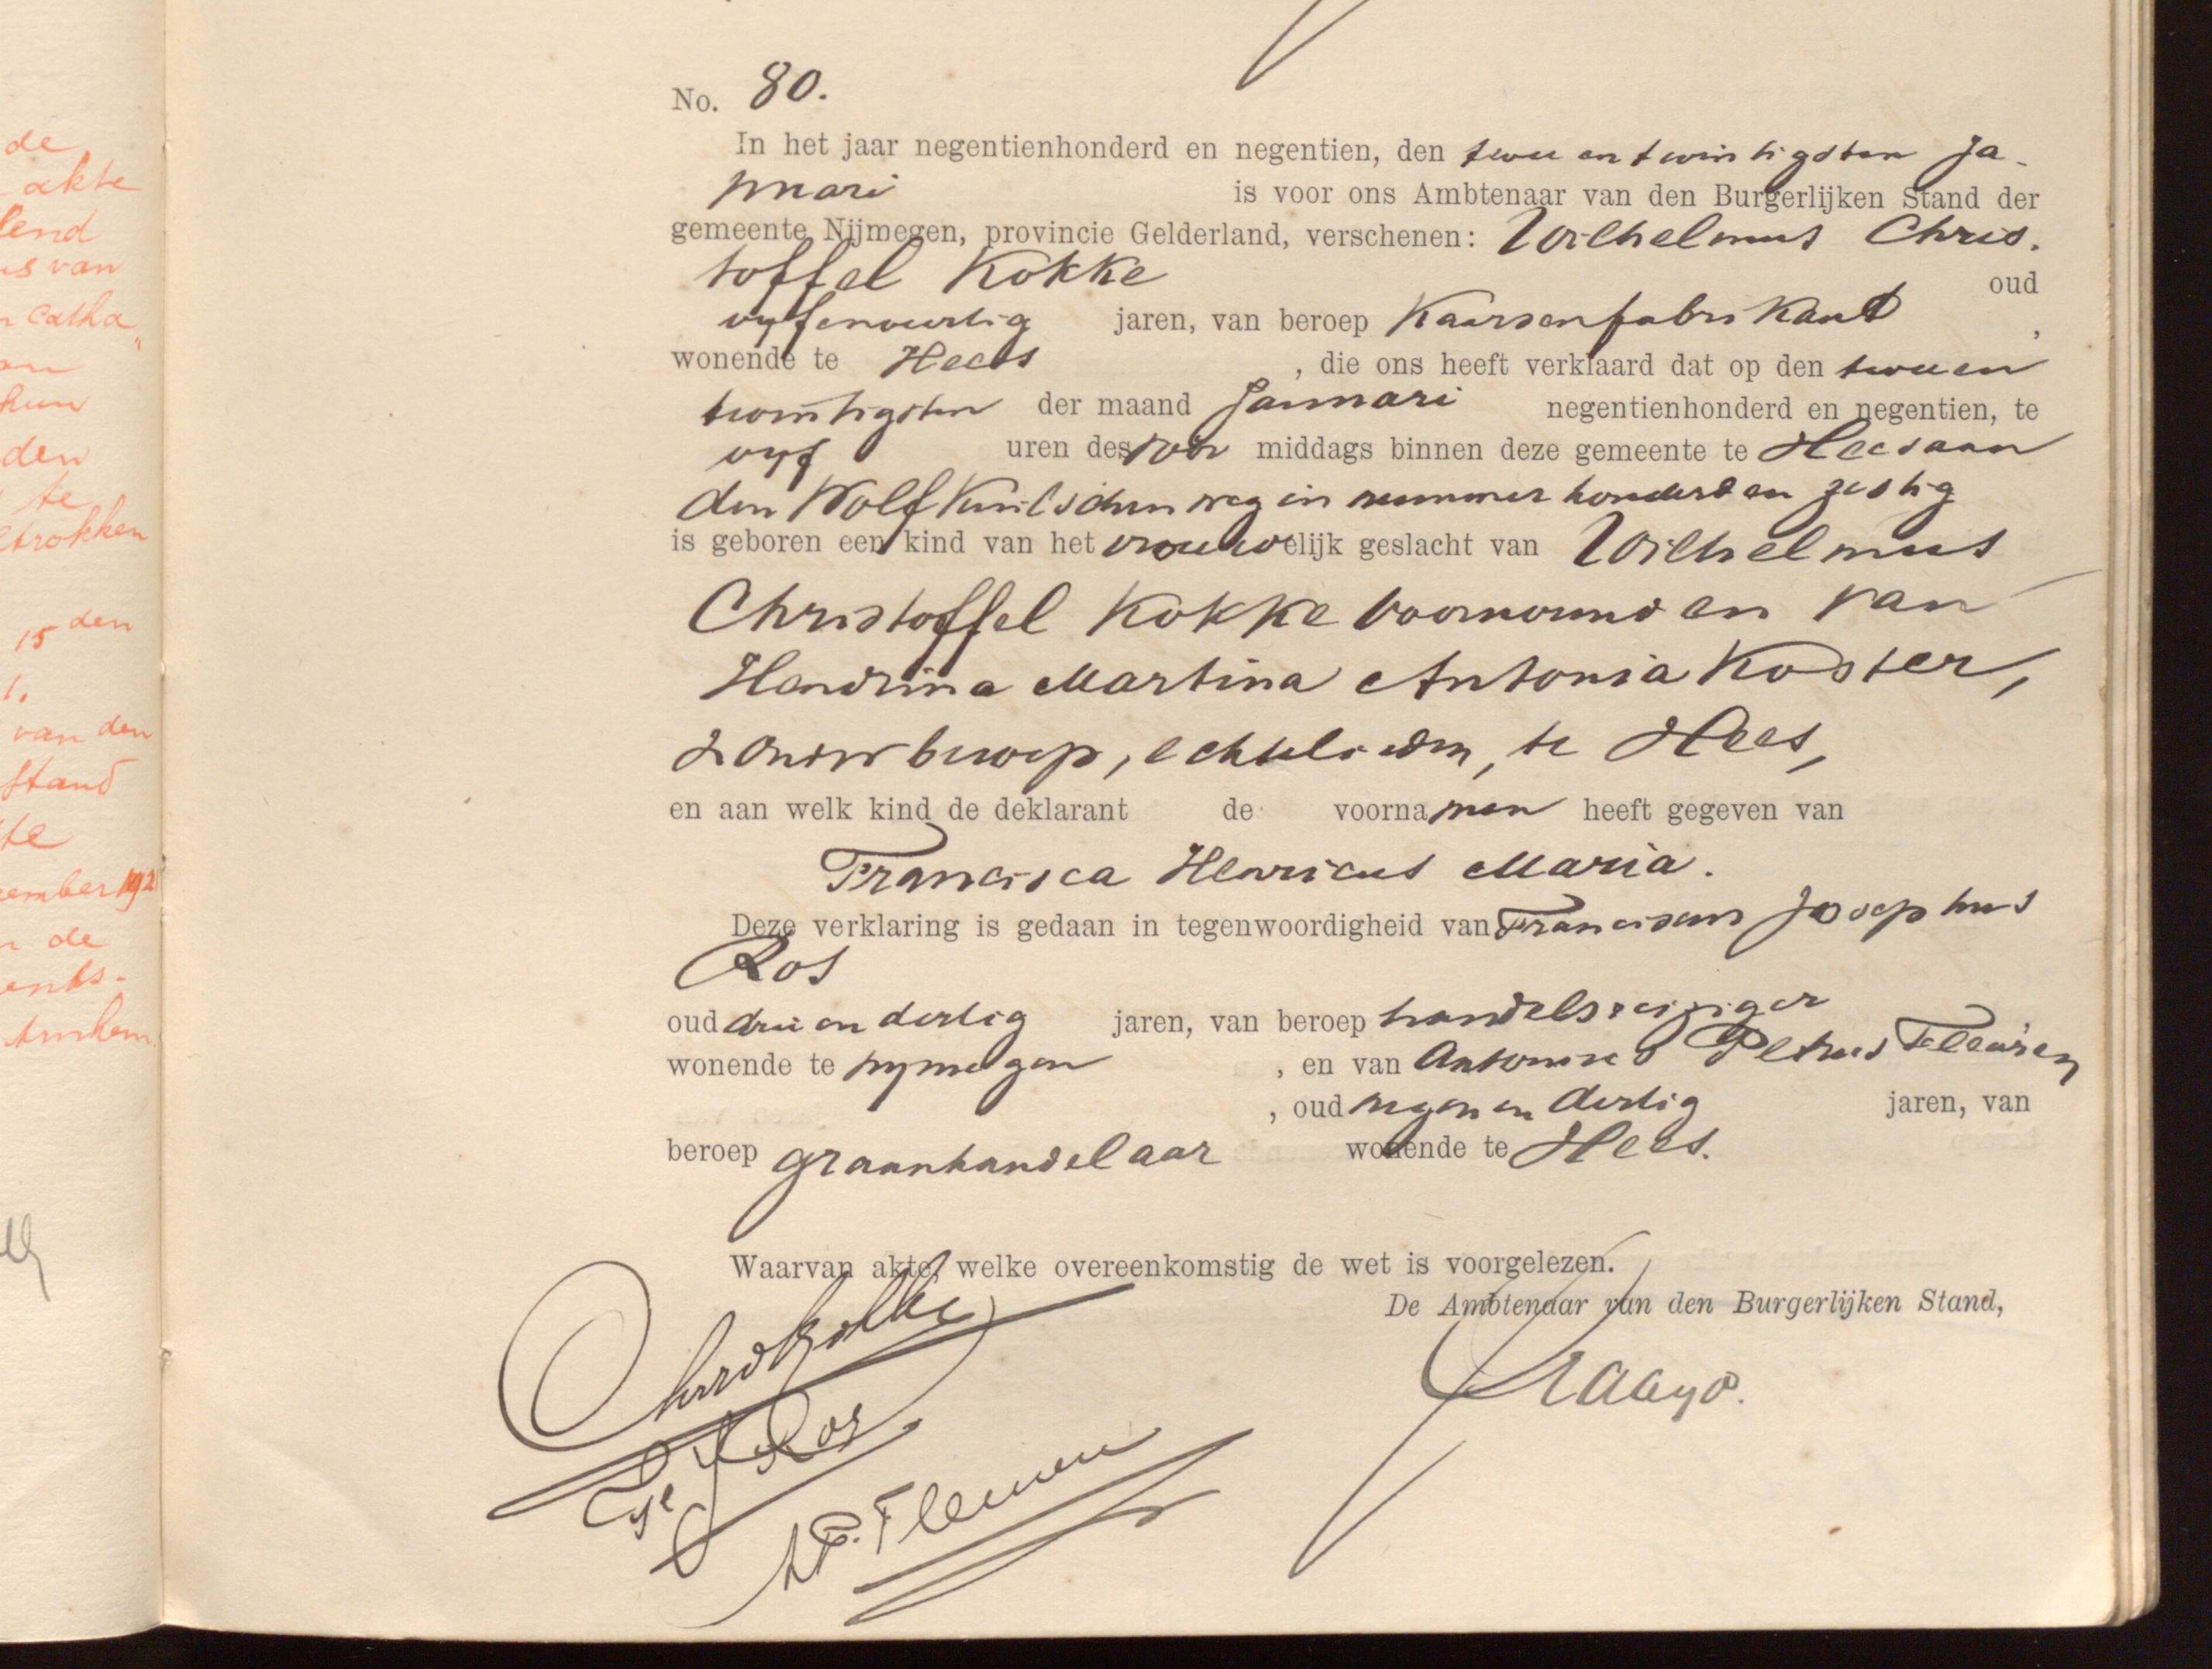 de
akte
lend
us van
n Catha
"
an
hun
den
te
etrokken
15 den
1.
van den
stand
te
cember 192
n de
ents-
Arnhem.
No. 80.
In het jaar negentienhonderd en negentien, den twee en twintigsten Ja-
nuari is voor ons Ambtenaar van den Burgerlijken Stand der
gemeente Nijmegen, provincie Gelderland, verschenen: Wilhelmus Chris-
toffel Kokke oud
vyfenveertig jaren, van beroep Kaarsenfabrikant,
wonende te Hees, die ons heeft verklaard dat op den tweeen
twintigsten der maand Januari negentienhonderd en negentien, te
vyf uren des voor middags binnen deze gemeente te Hees aan
den Wolfkuilschen weg in nummer honderd en zestig
is geboren een kind van het vrouwelijk geslacht van Wilhelmus
Christoffel Kokke voornoemd en van
Hendrina Martina Antonia Koster,
zonder beroep, echtelieden, te Hees,
en aan welk kind de deklarant de voornamen heeft gegeven van
Francisca Henricus Maria.
Deze verklaring is gedaan in tegenwoordigheid van Franciscus Josephus
Ros
oud drie en dertig jaren, van beroep handelsreiziger
wonende te Nymegen, en van Antonius Petrus Fleuren
, oud negen en dertig jaren, van
beroep graanhandelaar wonende te Hees.
Waarvan akte, welke overeenkomstig de wet is voorgelezen.
De Ambtenaar van den Burgerlijken Stand,
Chrs Kokke
Ros
A.P. Fleuren